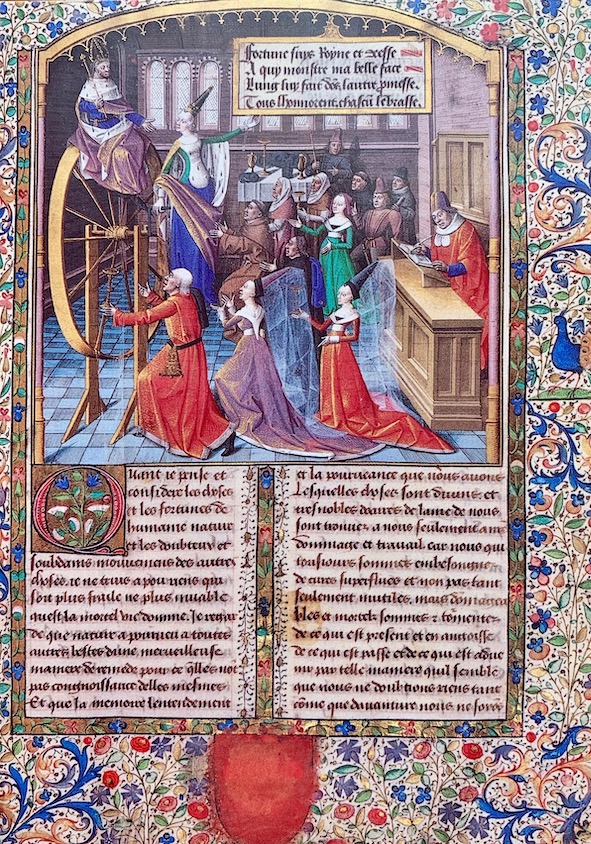 Fortune suys Royne et deesse
A quy monstre ma belle face
Lung suy fait dos lautre presse
Tous lhonnorent chascun lebrasse
Quant ie pense et
considere les choses
et les fortunes de
humaine nature
et les doubteux et
souldains mouvemens des autres
choses. ie ne truis a pou riens qui
soit plus fraile ne plus muable
quest la mortel vie domme. Je regar
de que nature a pourveu a toutes
autres bestes dune merveilleuse
maniere de remede pour ce qlles not
pas congnoissance delles mesmes
Et que la memoire lentendement
et la pourveance que nous avons
Lesquelles choses sont divins et
tresnobles doeurs de lame de nous
sont tournez a nous seulement
dommage et travail car nous qui
tousiours sommes embesongnies
de cures superflues et non pas tant
seulement inutiles, mais dommagea
bles et mortelz sommes tormentez
de ce qui est present et en angoisse
de ce qui est passe et de ce qui est adve
nir par telle maniere quil semble
que nous ne doubtons riens tant
come que davanture nous ne soyons